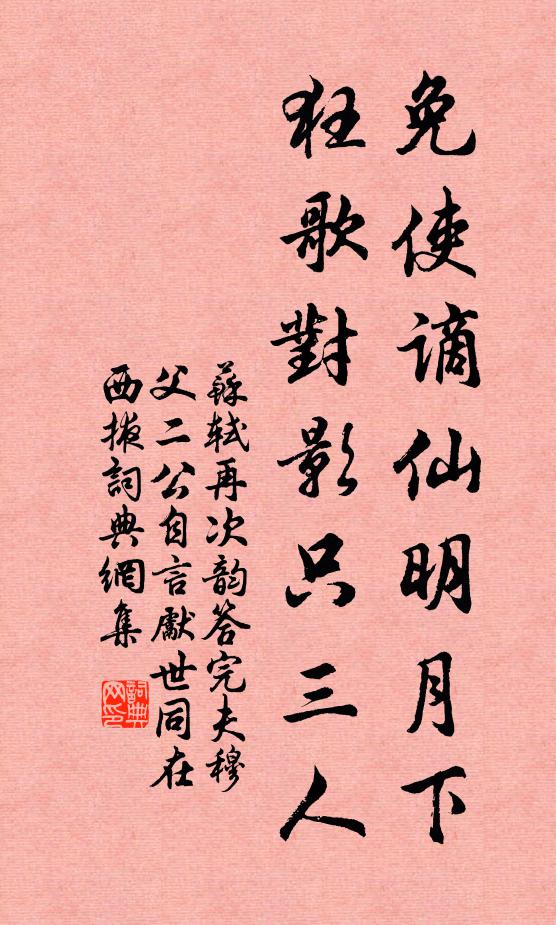 免使謫仙明月下
狂歌對影只三人
蘇軾再次韵答完夫穆
父二公自言獻世同在
西掖詞典網集
詞典网印